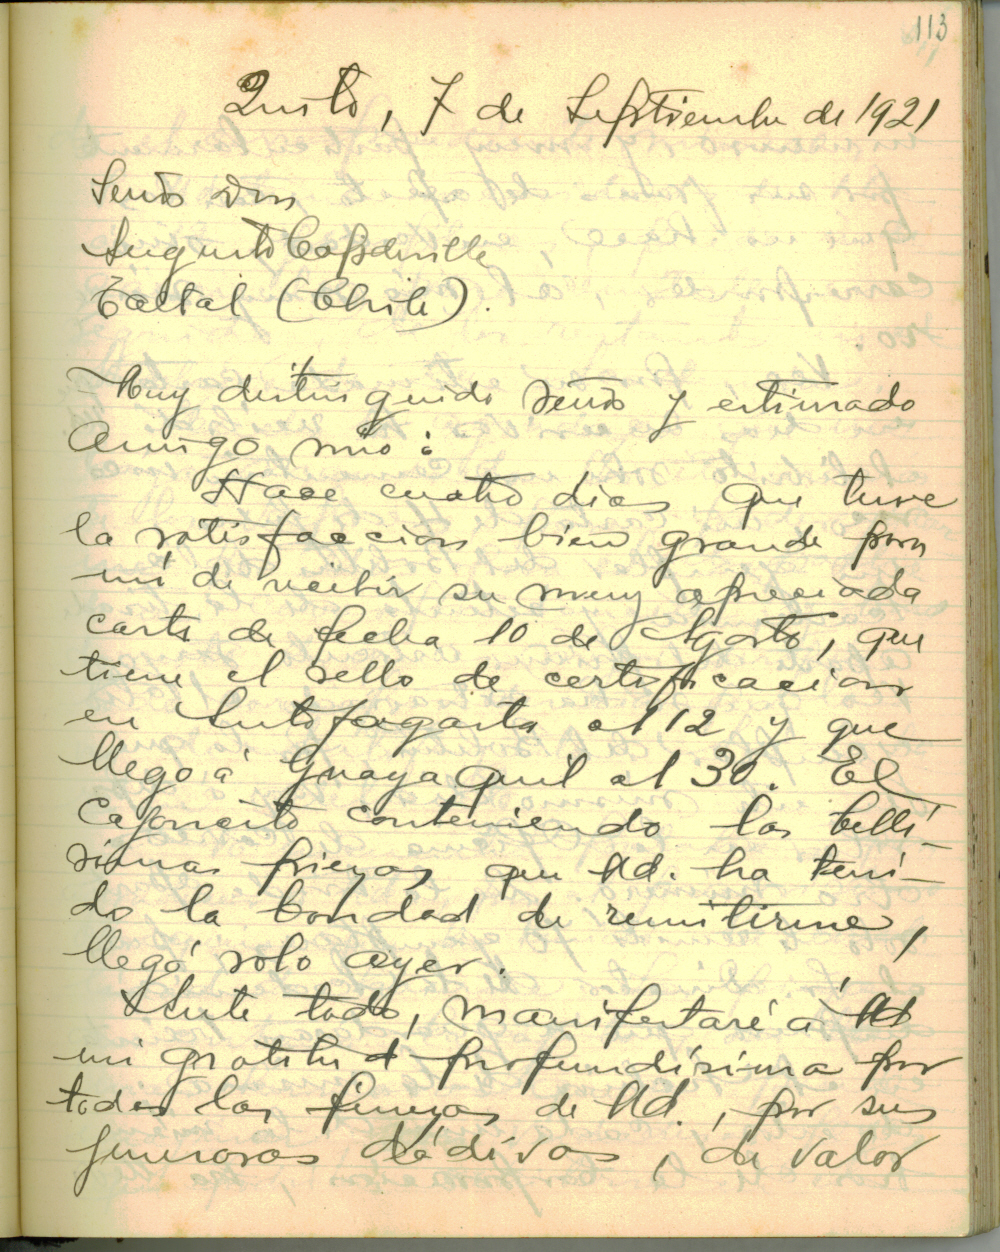 113
Quito, 7 de Septiembre de 1921
Señor Don
Augusto Capdeville
Taltal (Chile).
Muy distinguido señor y estimado
amigo mío:
Hace cuatro días que tuve
la satisfaccion bien grande para
mí de recibir su muy apreciada
carta de fecha 10 de Agosto, que
tiene el sello de certificacion
en Antofagasta el 12 y que
llegó á Guayaquil el 30. El
cajoncito conteniendo las bellí-
simas piezas que Ud. ha teni-
do la bondad de remitirme,
llegó solo ayer.
Ante todo, manifestaré á Ud
mi gratitud profundísima por
todas las finezas de Ud., por sus
generosas dádivas, de valor